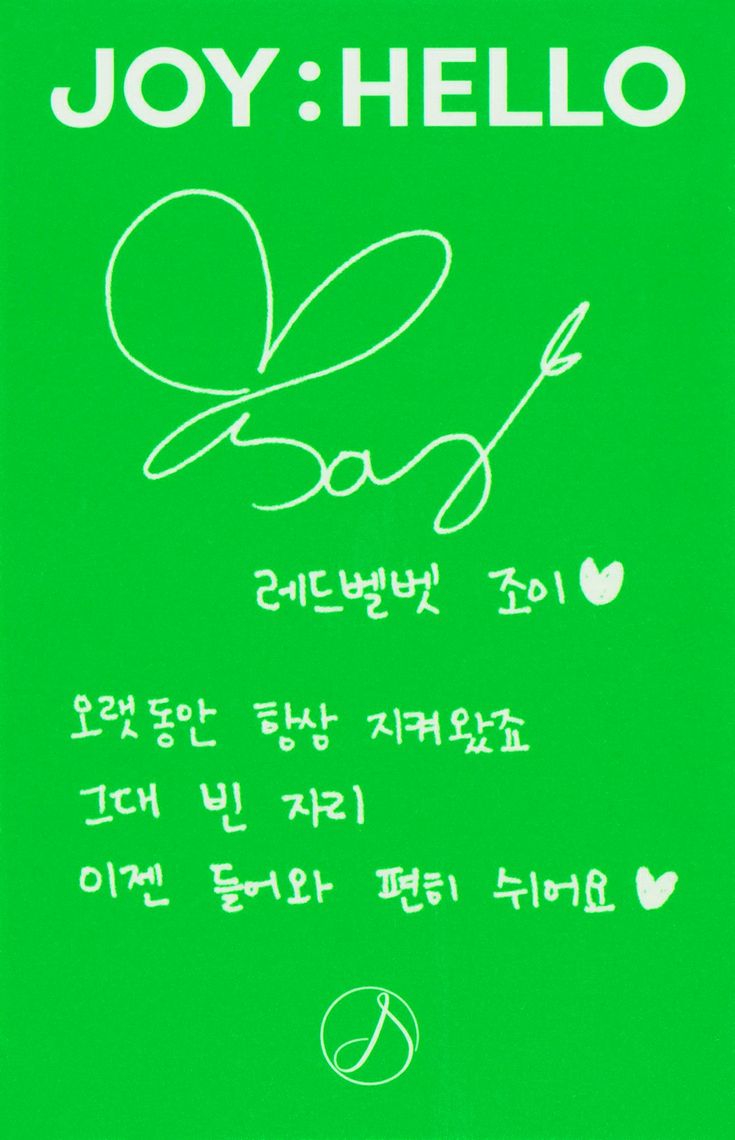 JOY:HELLO
Joy
레드벨벳 조이♥
오랫동안 항상 지켜왔죠
그대 빈 자리
이젠 들어와 편히 쉬어요♥